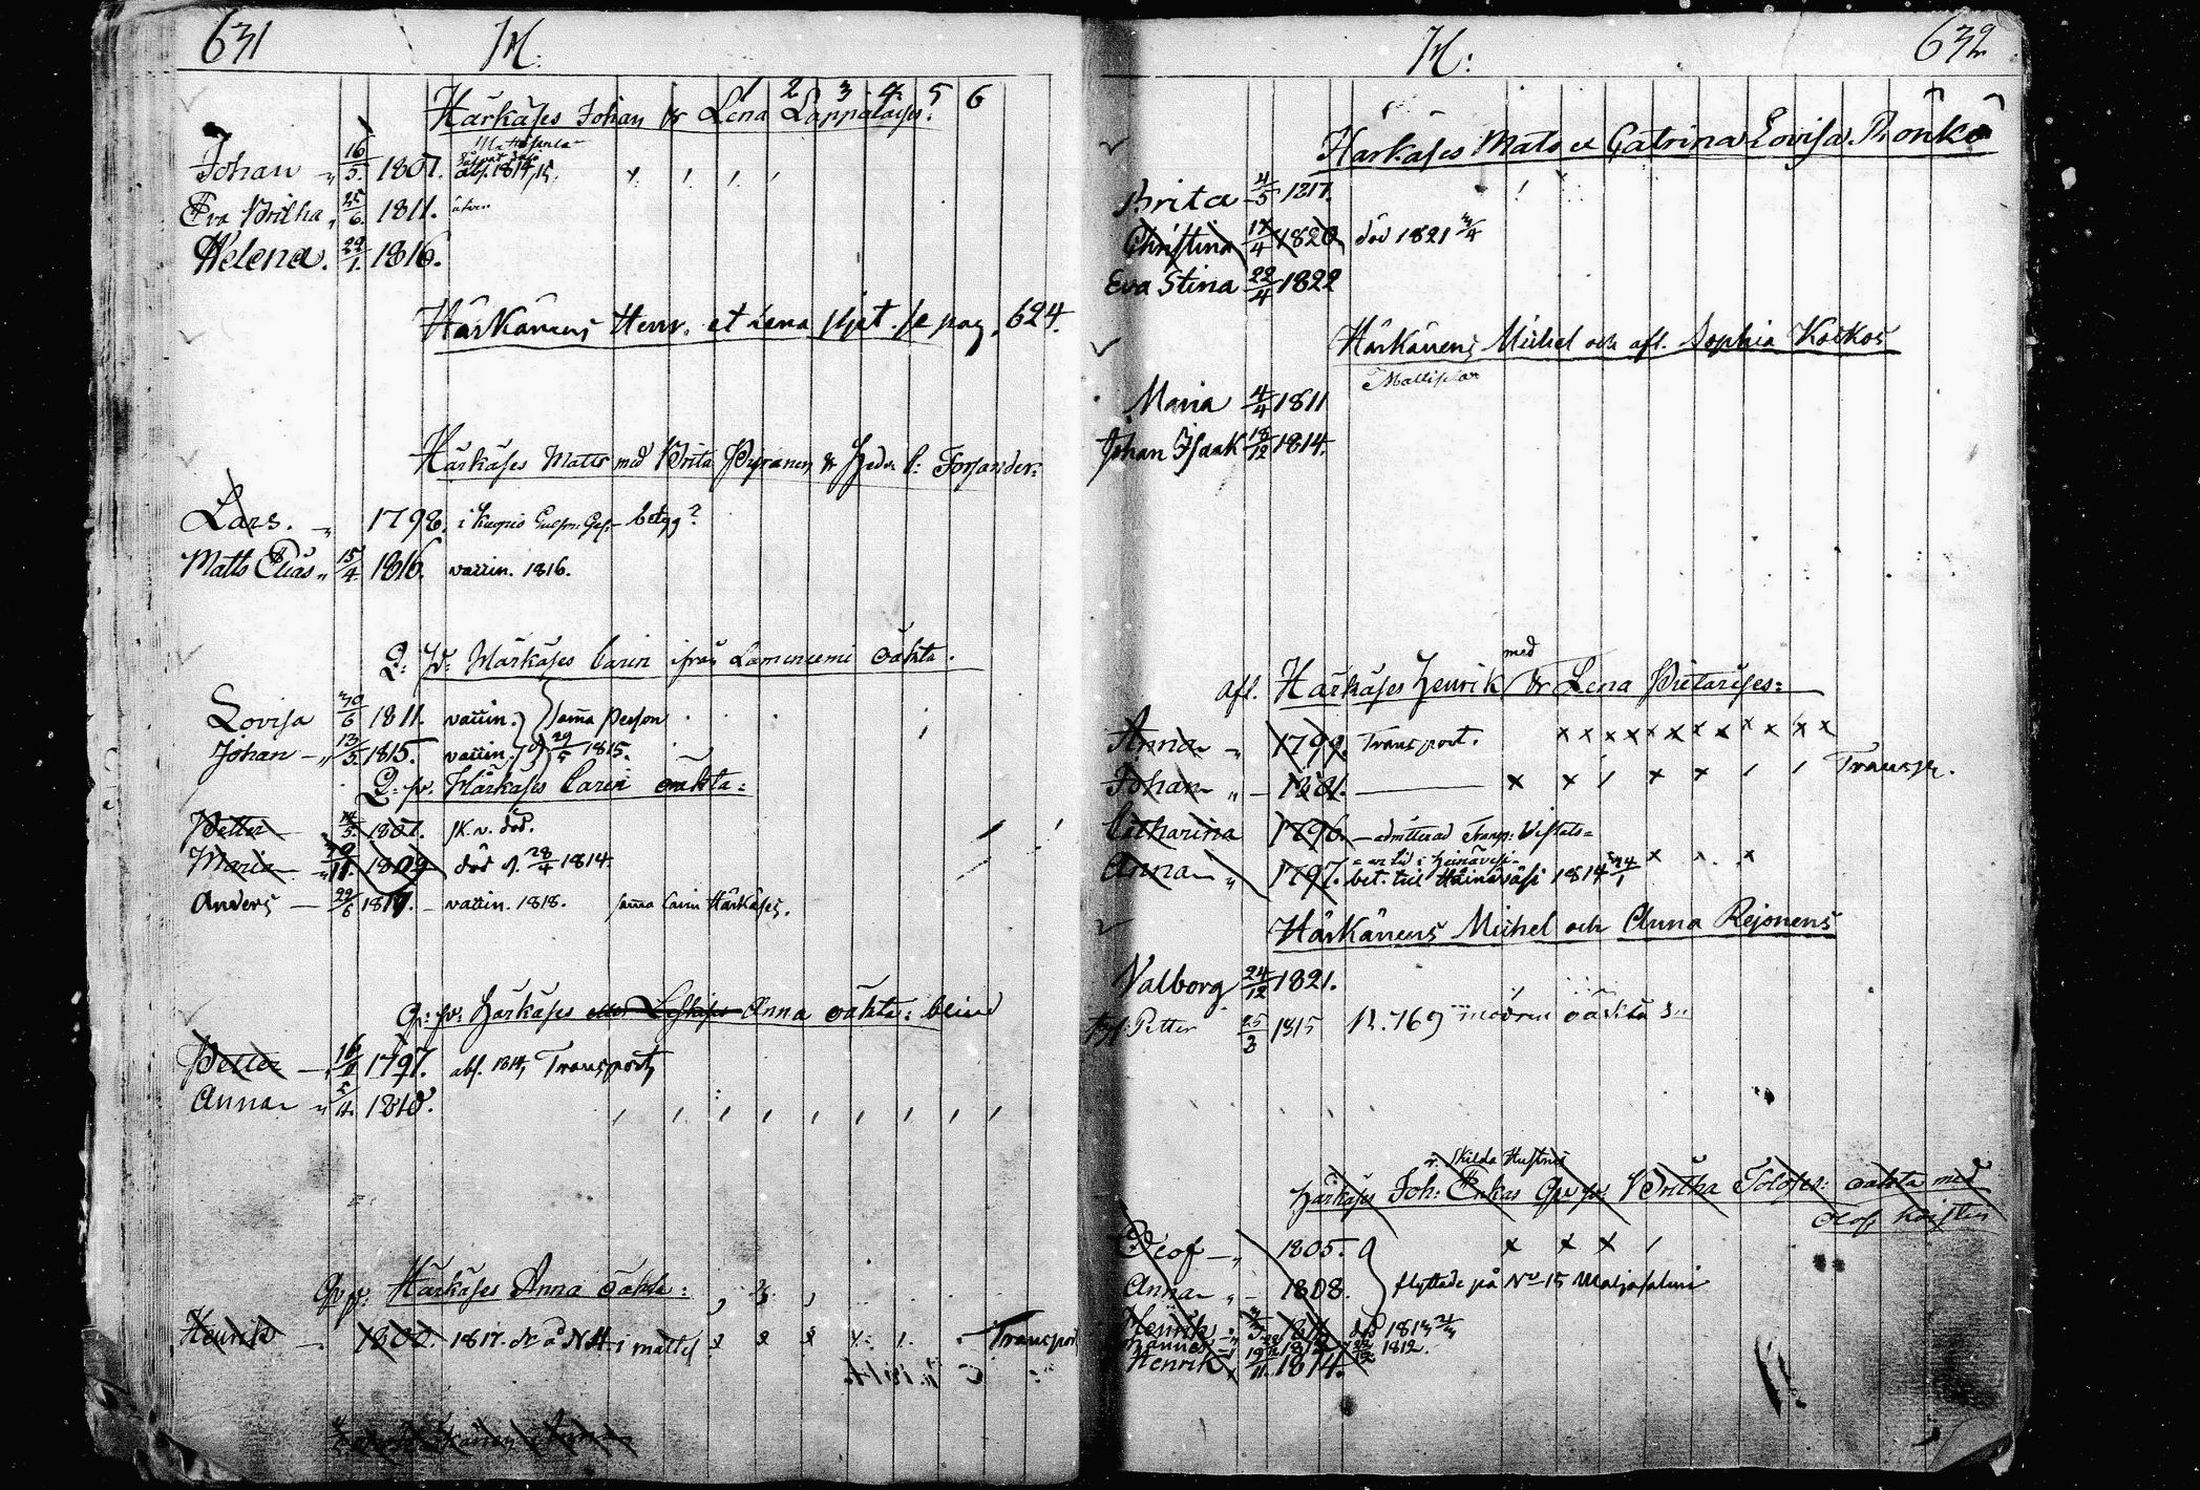 631 H.
1 2 3 4 5 6
Härkäses Johan & Lena Lappalayses.
Johan " 16/5. 1807. abs. 1814, 15.
Eva Britha " 25/6. 1811.
Helena. 29/1. 1816.
Härkänens Henr. et Lena se pag. 624.
Härkäses Matts med Brita Pyranen & Hedv. C: Forsander:
Lars. " 1798. i Kuopio betyg?
Matts Elias " 15/4 1816. vaccin. 1816.
Q: p: Härkäses Carin ifrån oäkta.
Lovisa 30/6 1811. vaccin. } sama Person
Johan " 13/5. 1815. vaccin. } 29/5 1815.
Q: p: Härkäses Carin oäkta:
Petter 1807. sk. v. död.
Maria " 1809 död d. 28/4 1814.
Anders 29/6 1817. vaccin. 1818. sama Carin Härkäses.
Q: p: Härkäses Anna oäkta: blind
Petter 16/1 1797. abs. 1814, Transport,
Anna " 1810.
Q: p: Härkäses Anna oäkta:
Henrik 1800. 1817. Transport
H: 632
Härkäses Mats et Catrina Lovisa Rönkö
Brita 4/5 1817.
Christina 17/4 1820 död 1821 3/4
Eva Stina 22/4 1822
Härkänens Michel och afl. Sophia Koikos
Maria 4/4 1811
Johan Isaak 18/12 1814.
afl. Härkäses Henrik med & Lena Pietarises:
Anna " 1799. Transport. x x x x x x x x x x x x
Johan " 1801. x x / x x / / Transp.
Catharina 1796.
Anna " 1797. bet. till Häinäväsi 1814
Härkänens Michel och Anna Rejonens
Valborg 24/12 1821.
Petter 25/3 1815 N. 769 modren oäkta
skilda Hustru
Härkäses Joh: Enkas Britha oäkta med
Olof
Olof " 1805.
Anna " 1808. } flyttade på No 15 Maljasalmi
Henrik död 1813
1812.
Henrik 19/11. 1814.